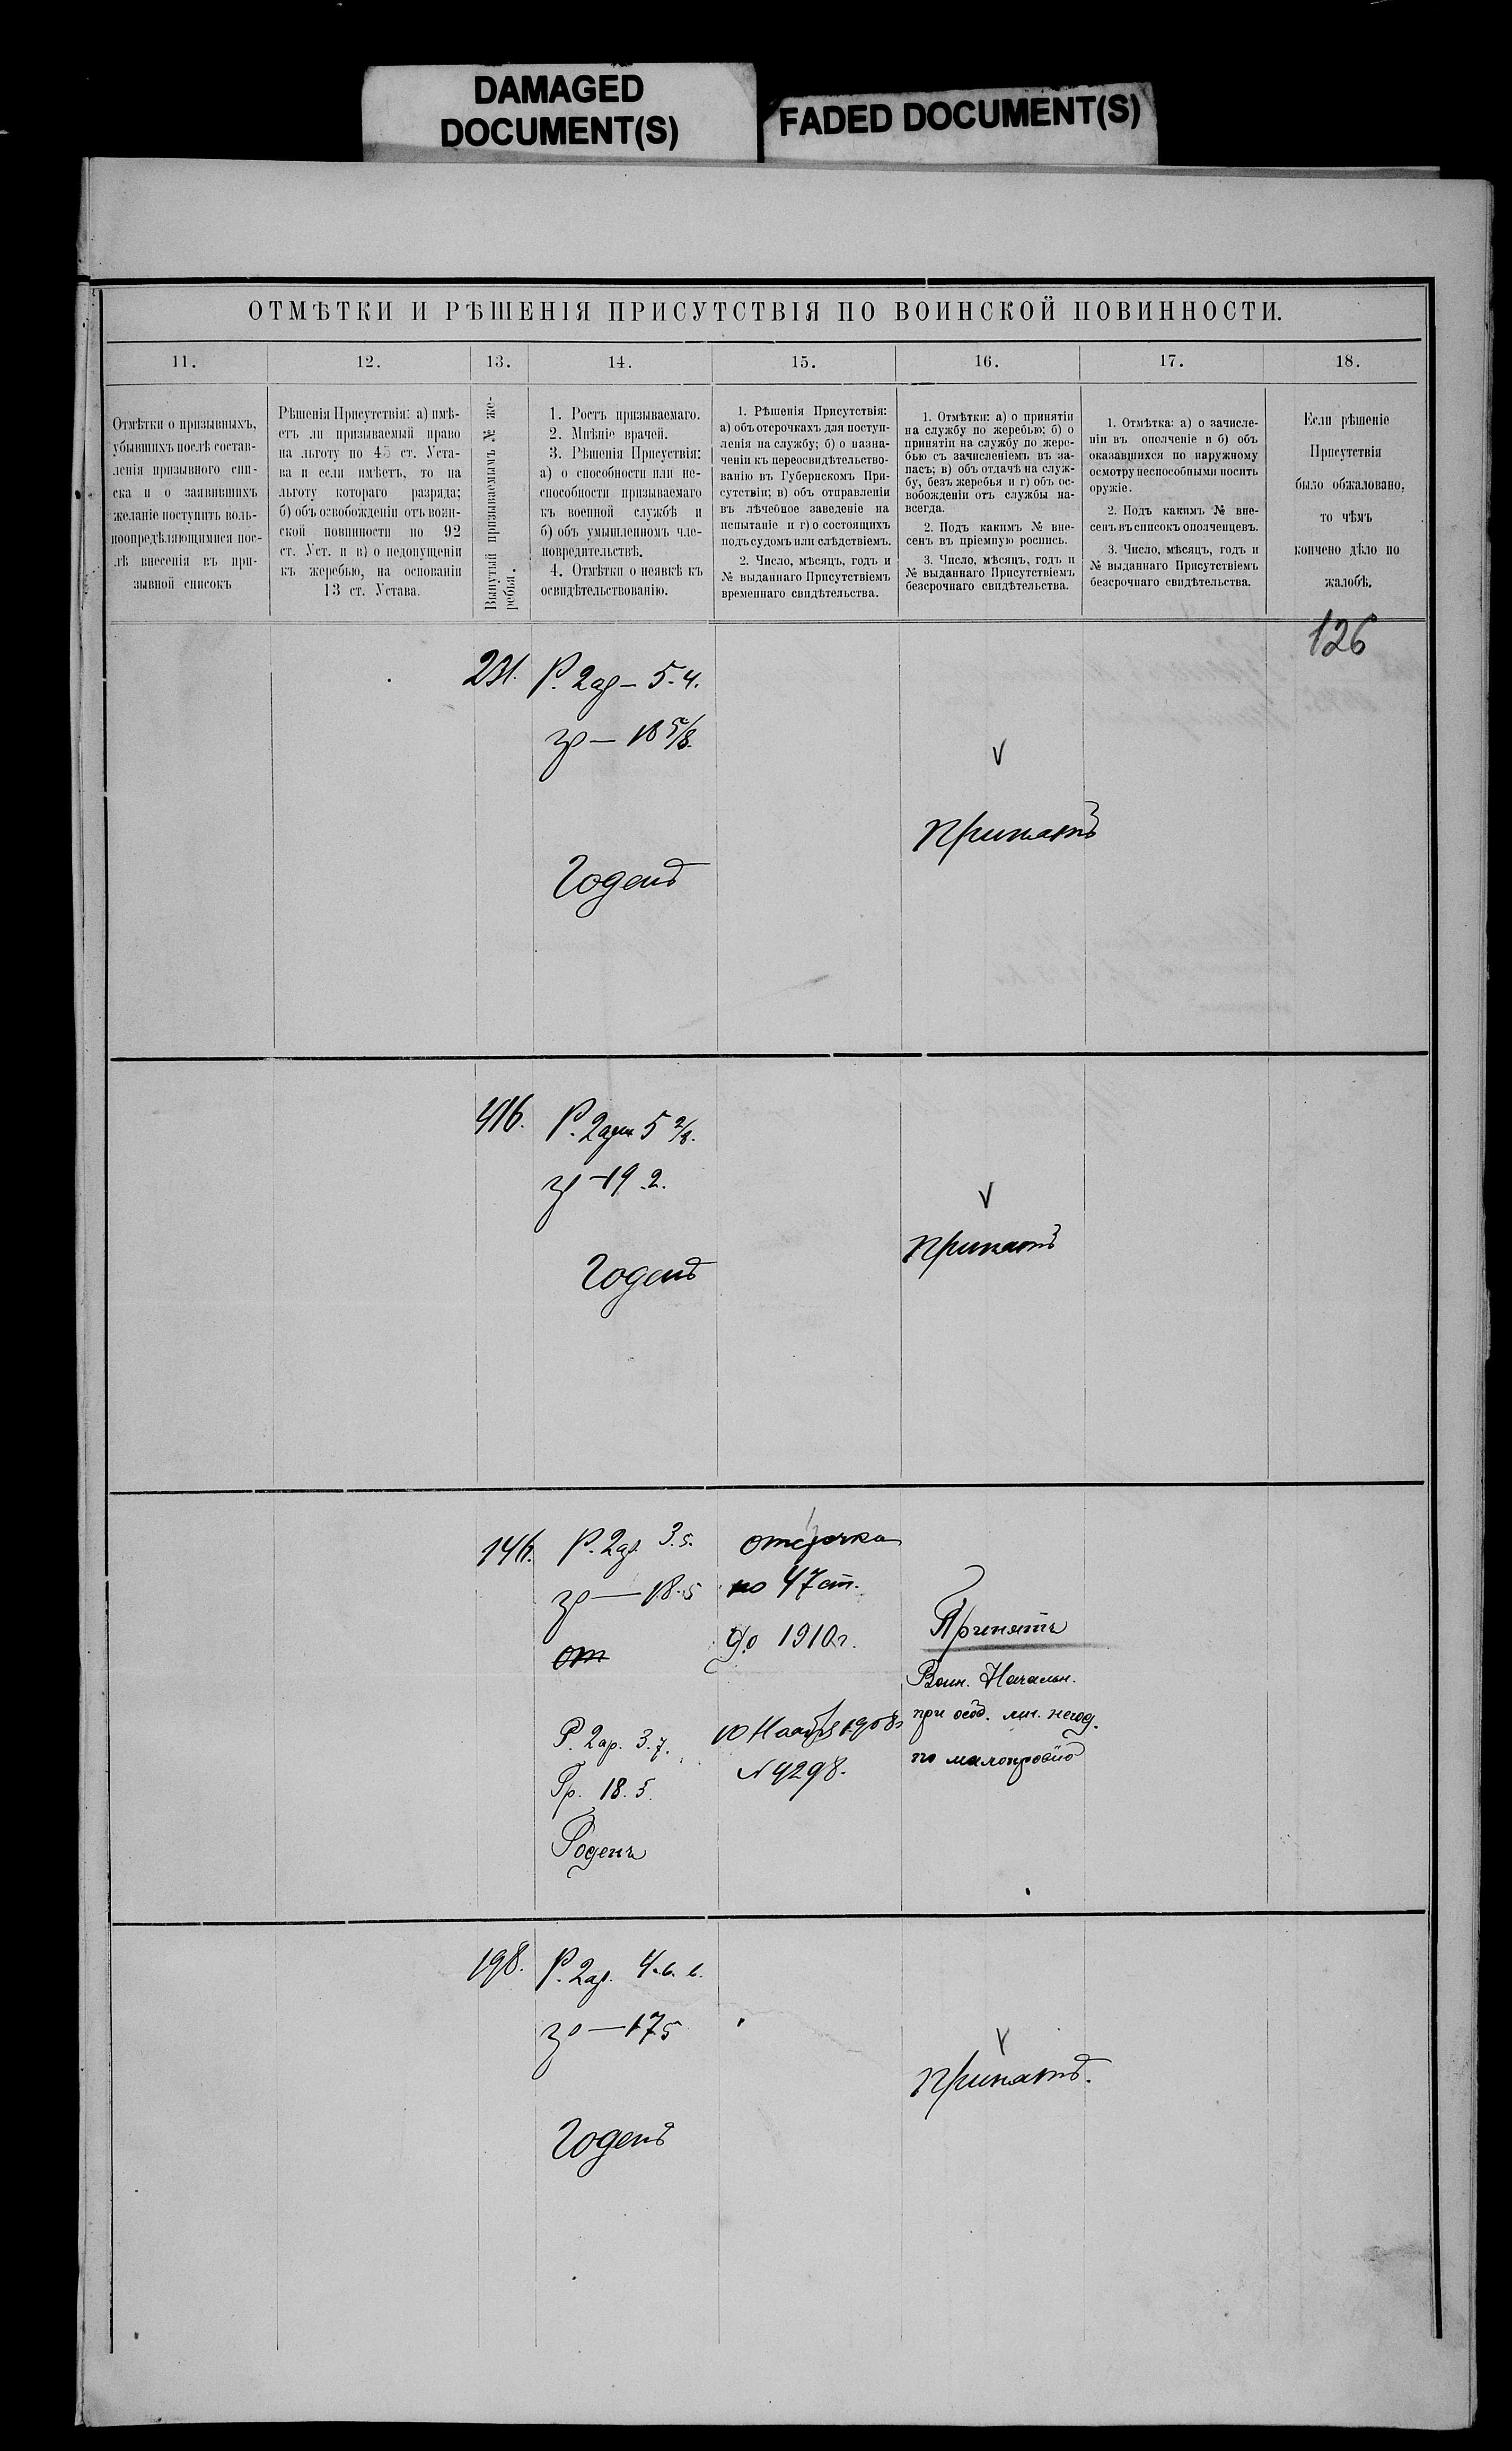 DAMAGED
DOCUMENT(S)
FADED DOCUMENT(S)
ОТМѢТКИ И РѢШЕНІЯ ПРИСУТСТВІЯ ПО ВОИНСКОЙ ПОВИННОСТИ.
11.
12.
13.
14.
15.
16.
17.
18.
Отмѣтки о призывныхъ,
убывшихъ послѣ состав-
ленія призывного спи-
ска и о заявившихъ
желаніе поступить воль-
ноопредѣляющимися пос-
лѣ внесенія въ при-
зывной списокъ
Рѣшенія Присутствія: а) имѣ-
етъ ли призываемый право
на льготу по 45 ст. Уста-
ва и если имѣетъ, то на
льготу котораго разряда;
б) объ освобожденіи отъ воин-
ской повинности по 92
ст. Уст. и в) о недопущеніи
къ жеребью, на основаніи
13 ст. Устава.
Вынутый призываемымъ № же-
ребья.
1. Ростъ призываемаго.
2. Мнѣніе врачей.
3. Рѣшенія Присутствія:
а) о способности или не-
способности призываемаго
къ военной службѣ и
б) объ умышленномъ чле-
новредительствѣ.
4. Отмѣтки о неявкѣ къ
освидѣтельствованію.
1. Рѣшенія Присутствія:
а) объ отсрочкахъ для поступ-
ленія на службу; б) о назна-
ченіи къ переосвидѣтельство-
ванію въ Губернскомъ При-
сутствіи; в) объ отправленіи
въ лѣчебное заведеніе на
испытаніе и г) о состоящихъ
подъ судомъ или слѣдствіемъ.
2. Число, мѣсяцъ, годъ и
№ выданнаго Присутствіемъ
временнаго свидѣтельства.
1. Отмѣтки: а) о принятіи
на службу по жеребью; б) о
принятіи на службу по жере-
бью съ зачисленіемъ въ за-
пасъ; в) объ отдачѣ на служ-
бу, безъ жеребья и г) объ ос-
вобожденіи отъ службы на-
всегда.
2. Подъ какимъ № вне-
сенъ въ пріемную роспись.
3. Число, мѣсяцъ, годъ и
№ выданнаго Присутствіемъ
безсрочнаго свидѣтельства.
1. Отмѣтка: а) о зачисле-
ніи въ ополченіе и б) объ
оказавшихся по наружному
осмотру неспособными носить
оружіе.
2. Подъ какимъ № вне-
сенъ въ списокъ ополченцевъ.
3. Число, мѣсяцъ, годъ и
№ выданнаго Присутствіемъ
безсрочнаго свидѣтельства.
Если рѣшеніе
Присутствія
было обжаловано,
то чѣмъ
кончено дѣло по
жалобѣ.
126
231. Р. 2ар – 5. 4.
гр – 18 5/8.
Принятъ
Годенъ
416. Р. 2арш 5 2/8.
гр – 19 2.
Принятъ
Годенъ
146. Р. 2ар. 3. 5.
гр – 18. 5
от
Р. 2ар. 3. 7.
Гр. 18. 5.
Годенъ
отсрочка
по 47 ст.
до 1910 г.
10 Ноября 1908 г
N 9298.
Принятъ
Воин. Начальн.
при негод.
по
198. Р. 2ар. 4.
гр – 17 5
Принятъ.
Годенъ